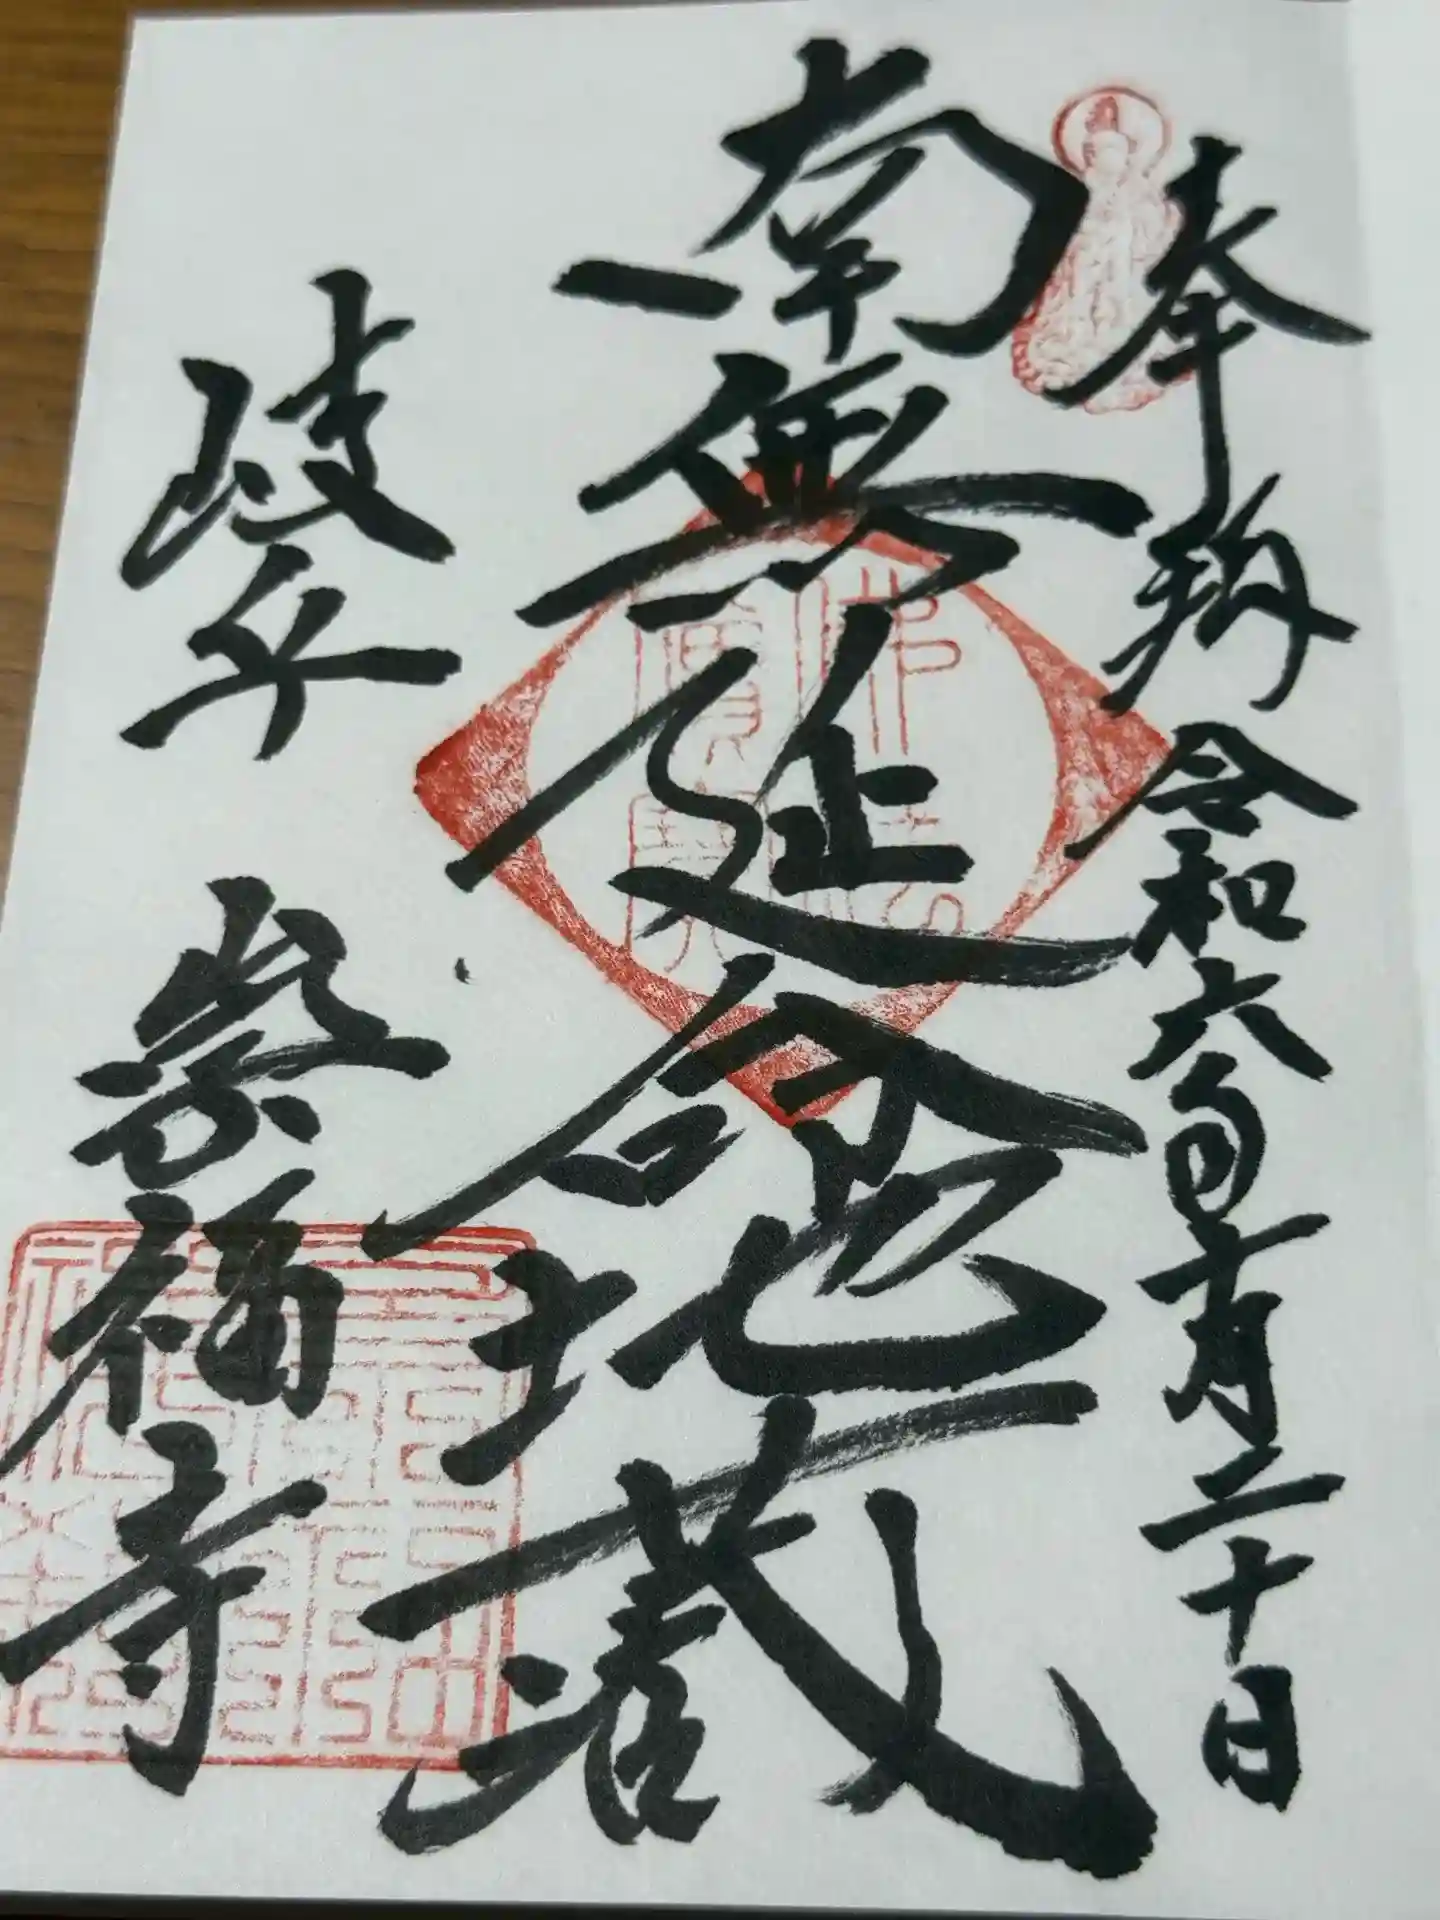 奉納 令和六年十月二十日
南無延命地蔵
岐阜 崇福寺